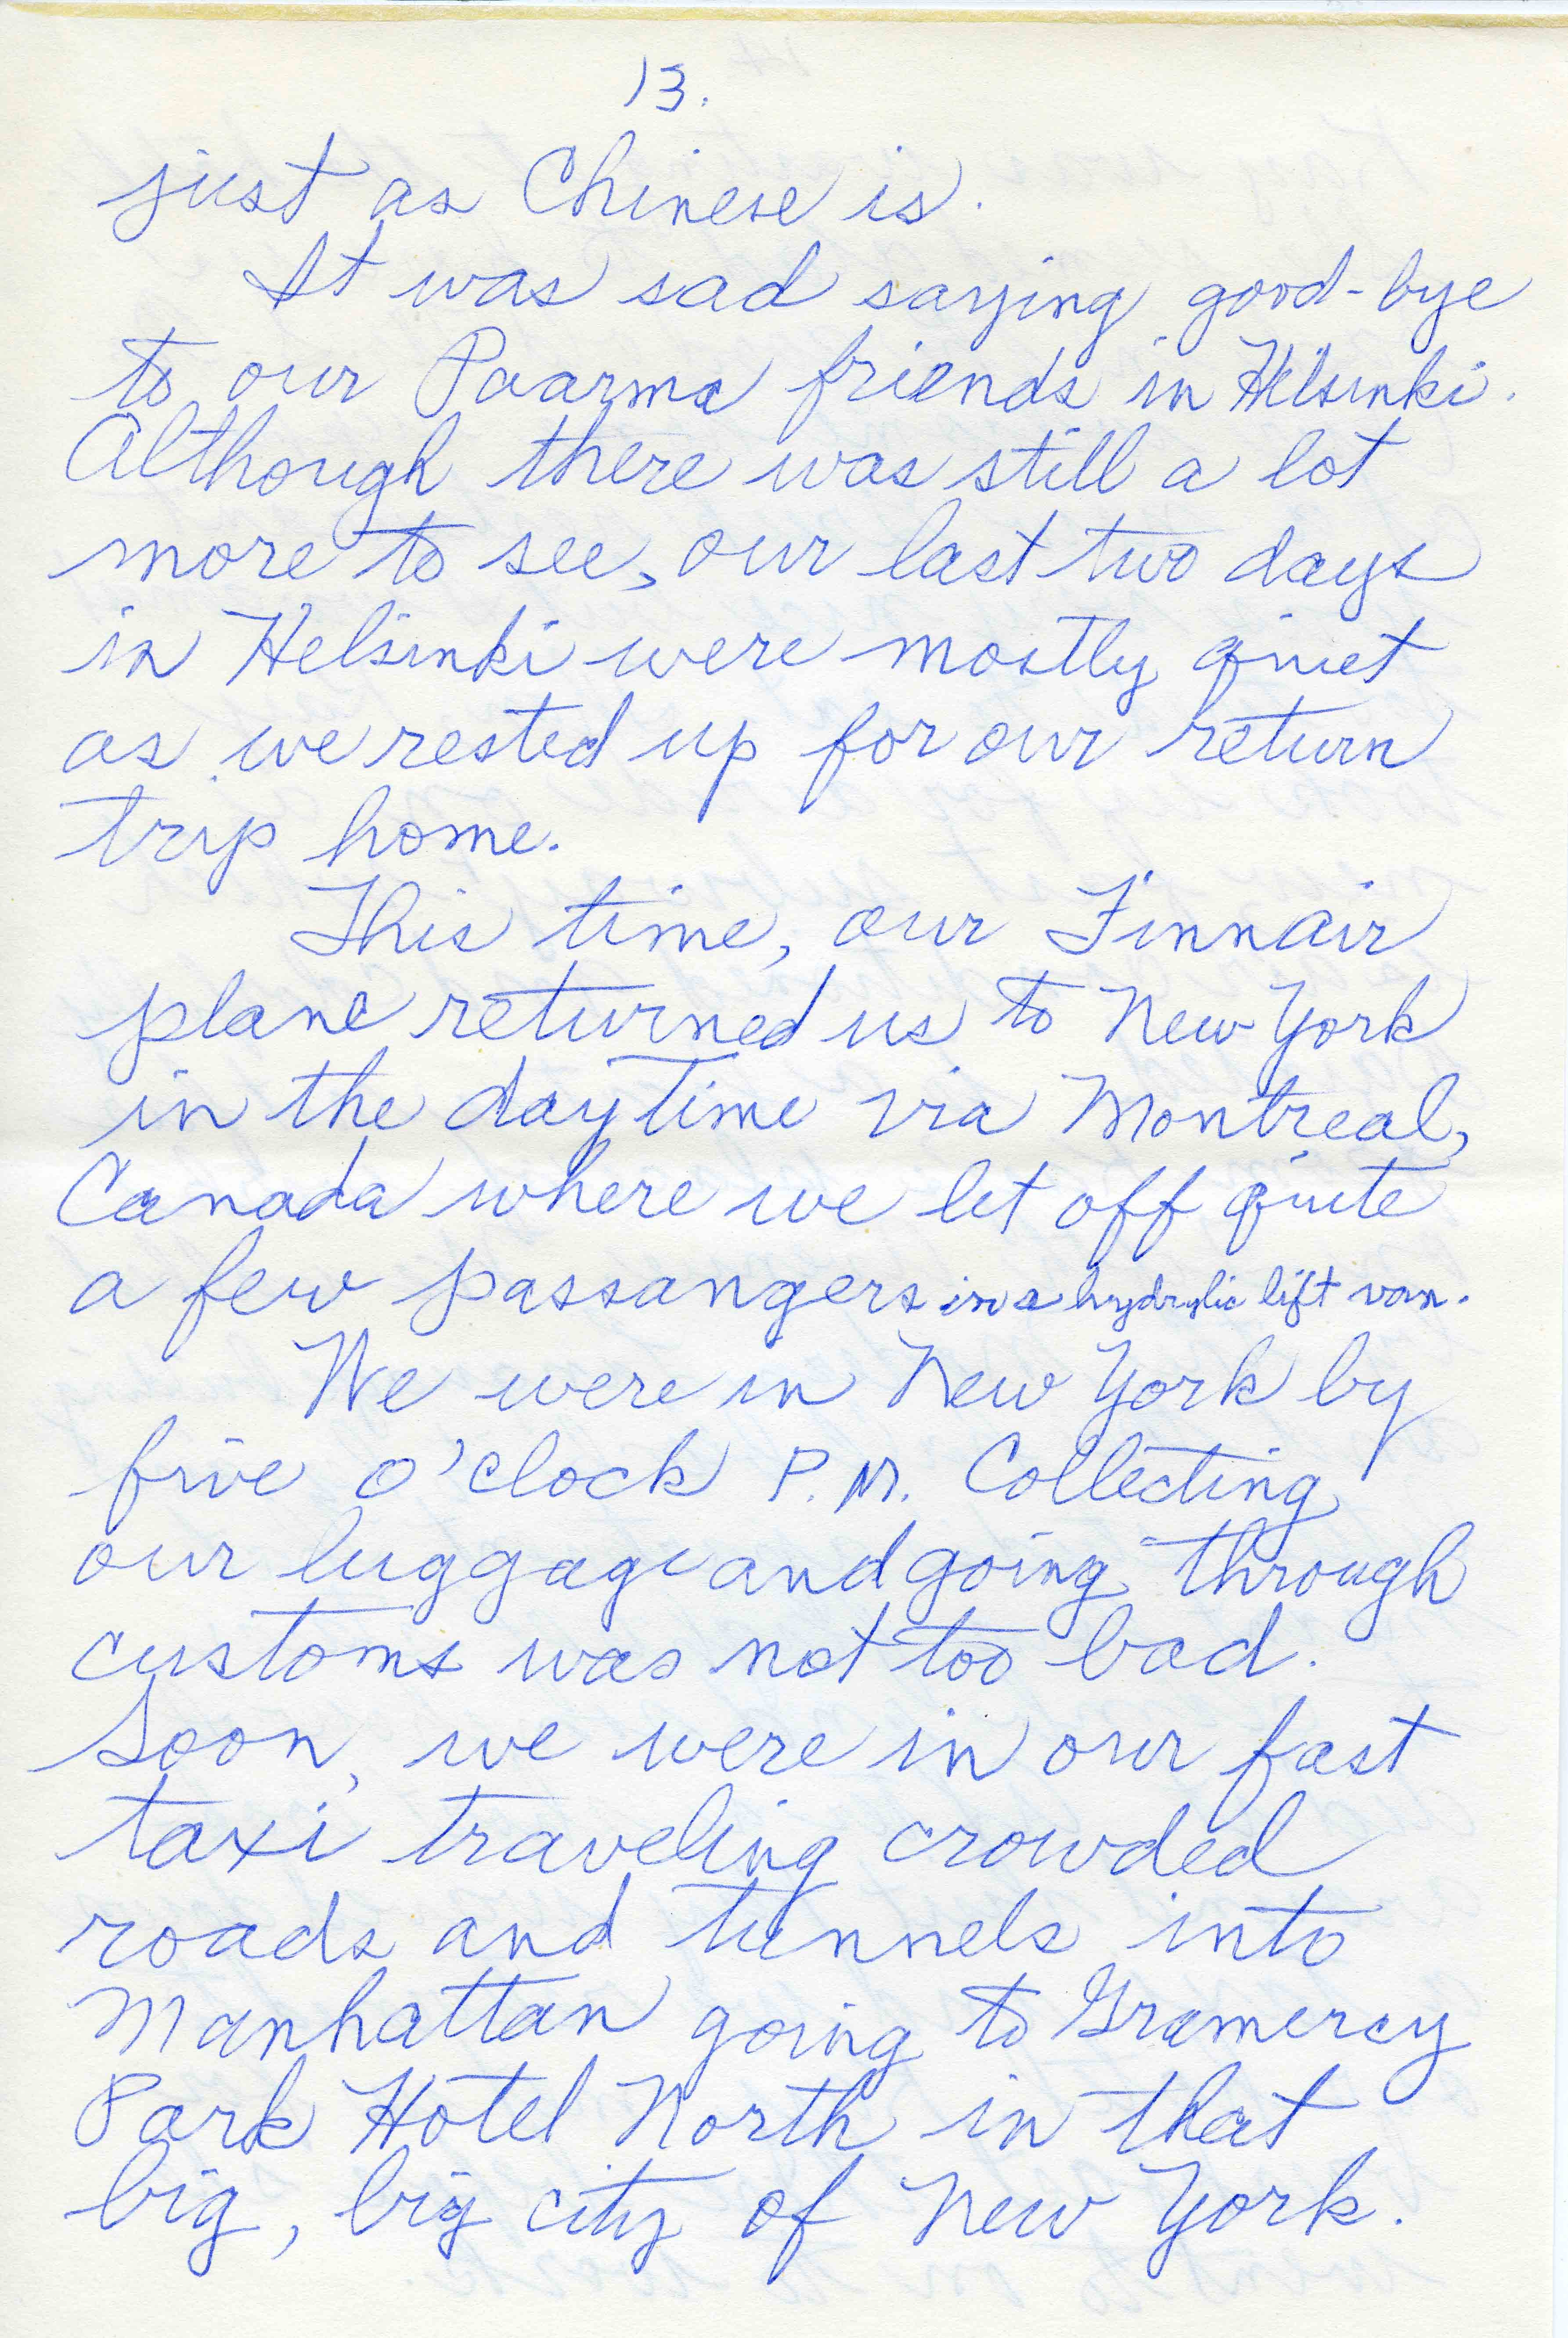 13.
just as Chinese is.
It was sad saying good-bye
to our Paarma friends in Helsinki.
Although there was still a lot
more to see, our last two days
in Helsinki were mostly quiet
as we rested up for our return
trip home.
This time, our Finnair
plane returned us to New York
in the daytime via Montreal,
Canada where we let off quite
a few passangers in a hydrylic lift van.
We were in New York by
five o'clock P.M. Collecting
our luggage and going through
customs was not too bad.
Soon, we were in our fast
taxi traveling crowded
roads and tunnels into
Manhattan going to Gramercy
Park Hotel North in that
big, big city of New York.